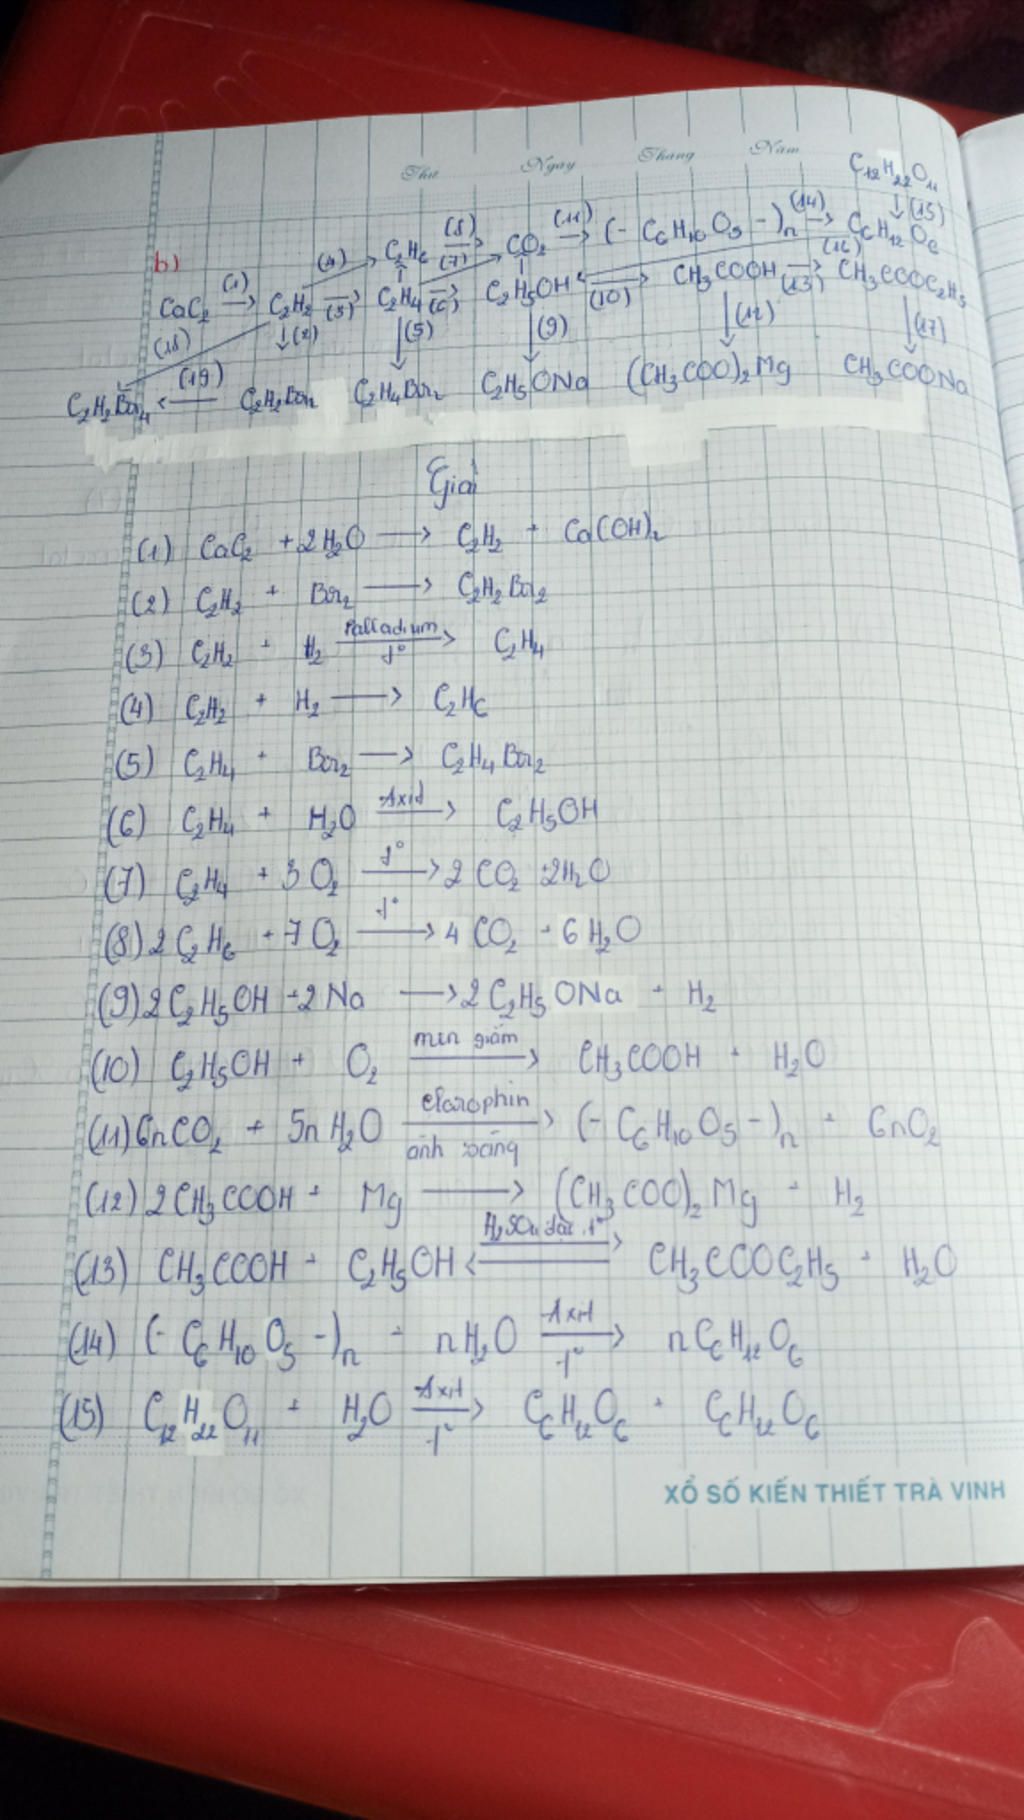 Thứ Ngày Tháng Năm
C₁₂H₂₂O₁₁
↓(15)
b) (4) C₂H₆ (8) (7) CO₂ (11) → (- C₆H₁₀O₅ -)n (14) → C₆H₁₂O₆
(16)
CaC₂ (1) → C₂H₂ (3) → C₂H₄ (6) → C₂H₅OH (10) CH₃COOH (13) → CH₃COOC₂H₅
(18) ↓(2) ↓(5) ↓(9) ↓(12) ↓(17)
C₂H₂Br₄ ← (19) C₂H₂Br₂ C₂H₄Br₂ C₂H₅ONa (CH₃COO)₂Mg CH₃COONa
Giải
(1) CaC₂ + 2H₂O → C₂H₂ + Ca(OH)₂
(2) C₂H₂ + Br₂ → C₂H₂Br₂
(3) C₂H₂ + H₂ Palladium t° → C₂H₄
(4) C₂H₂ + H₂ → C₂H₆
(5) C₂H₄ + Br₂ → C₂H₄Br₂
(6) C₂H₄ + H₂O Axid → C₂H₅OH
(7) C₂H₄ + 3O₂ t° → 2CO₂ + 2H₂O
(8) 2C₂H₆ + 7O₂ t° → 4CO₂ + 6H₂O
(9) 2C₂H₅OH + 2Na → 2C₂H₅ONa + H₂
(10) C₂H₅OH + O₂ men giấm → CH₃COOH + H₂O
(11) 6nCO₂ + 5nH₂O clorophin ánh sáng → (- C₆H₁₀O₅ -)n + 6nO₂
(12) 2CH₃COOH + Mg → (CH₃COO)₂Mg + H₂
(13) CH₃COOH + C₂H₅OH H₂SO₄ đặc, t° ⇌ CH₃COOC₂H₅ + H₂O
(14) (- C₆H₁₀O₅ -)n + nH₂O Axit t° → nC₆H₁₂O₆
(15) C₁₂H₂₂O₁₁ + H₂O Axit t° → C₆H₁₂O₆ + C₆H₁₂O₆
XỔ SỐ KIẾN THIẾT TRÀ VINH